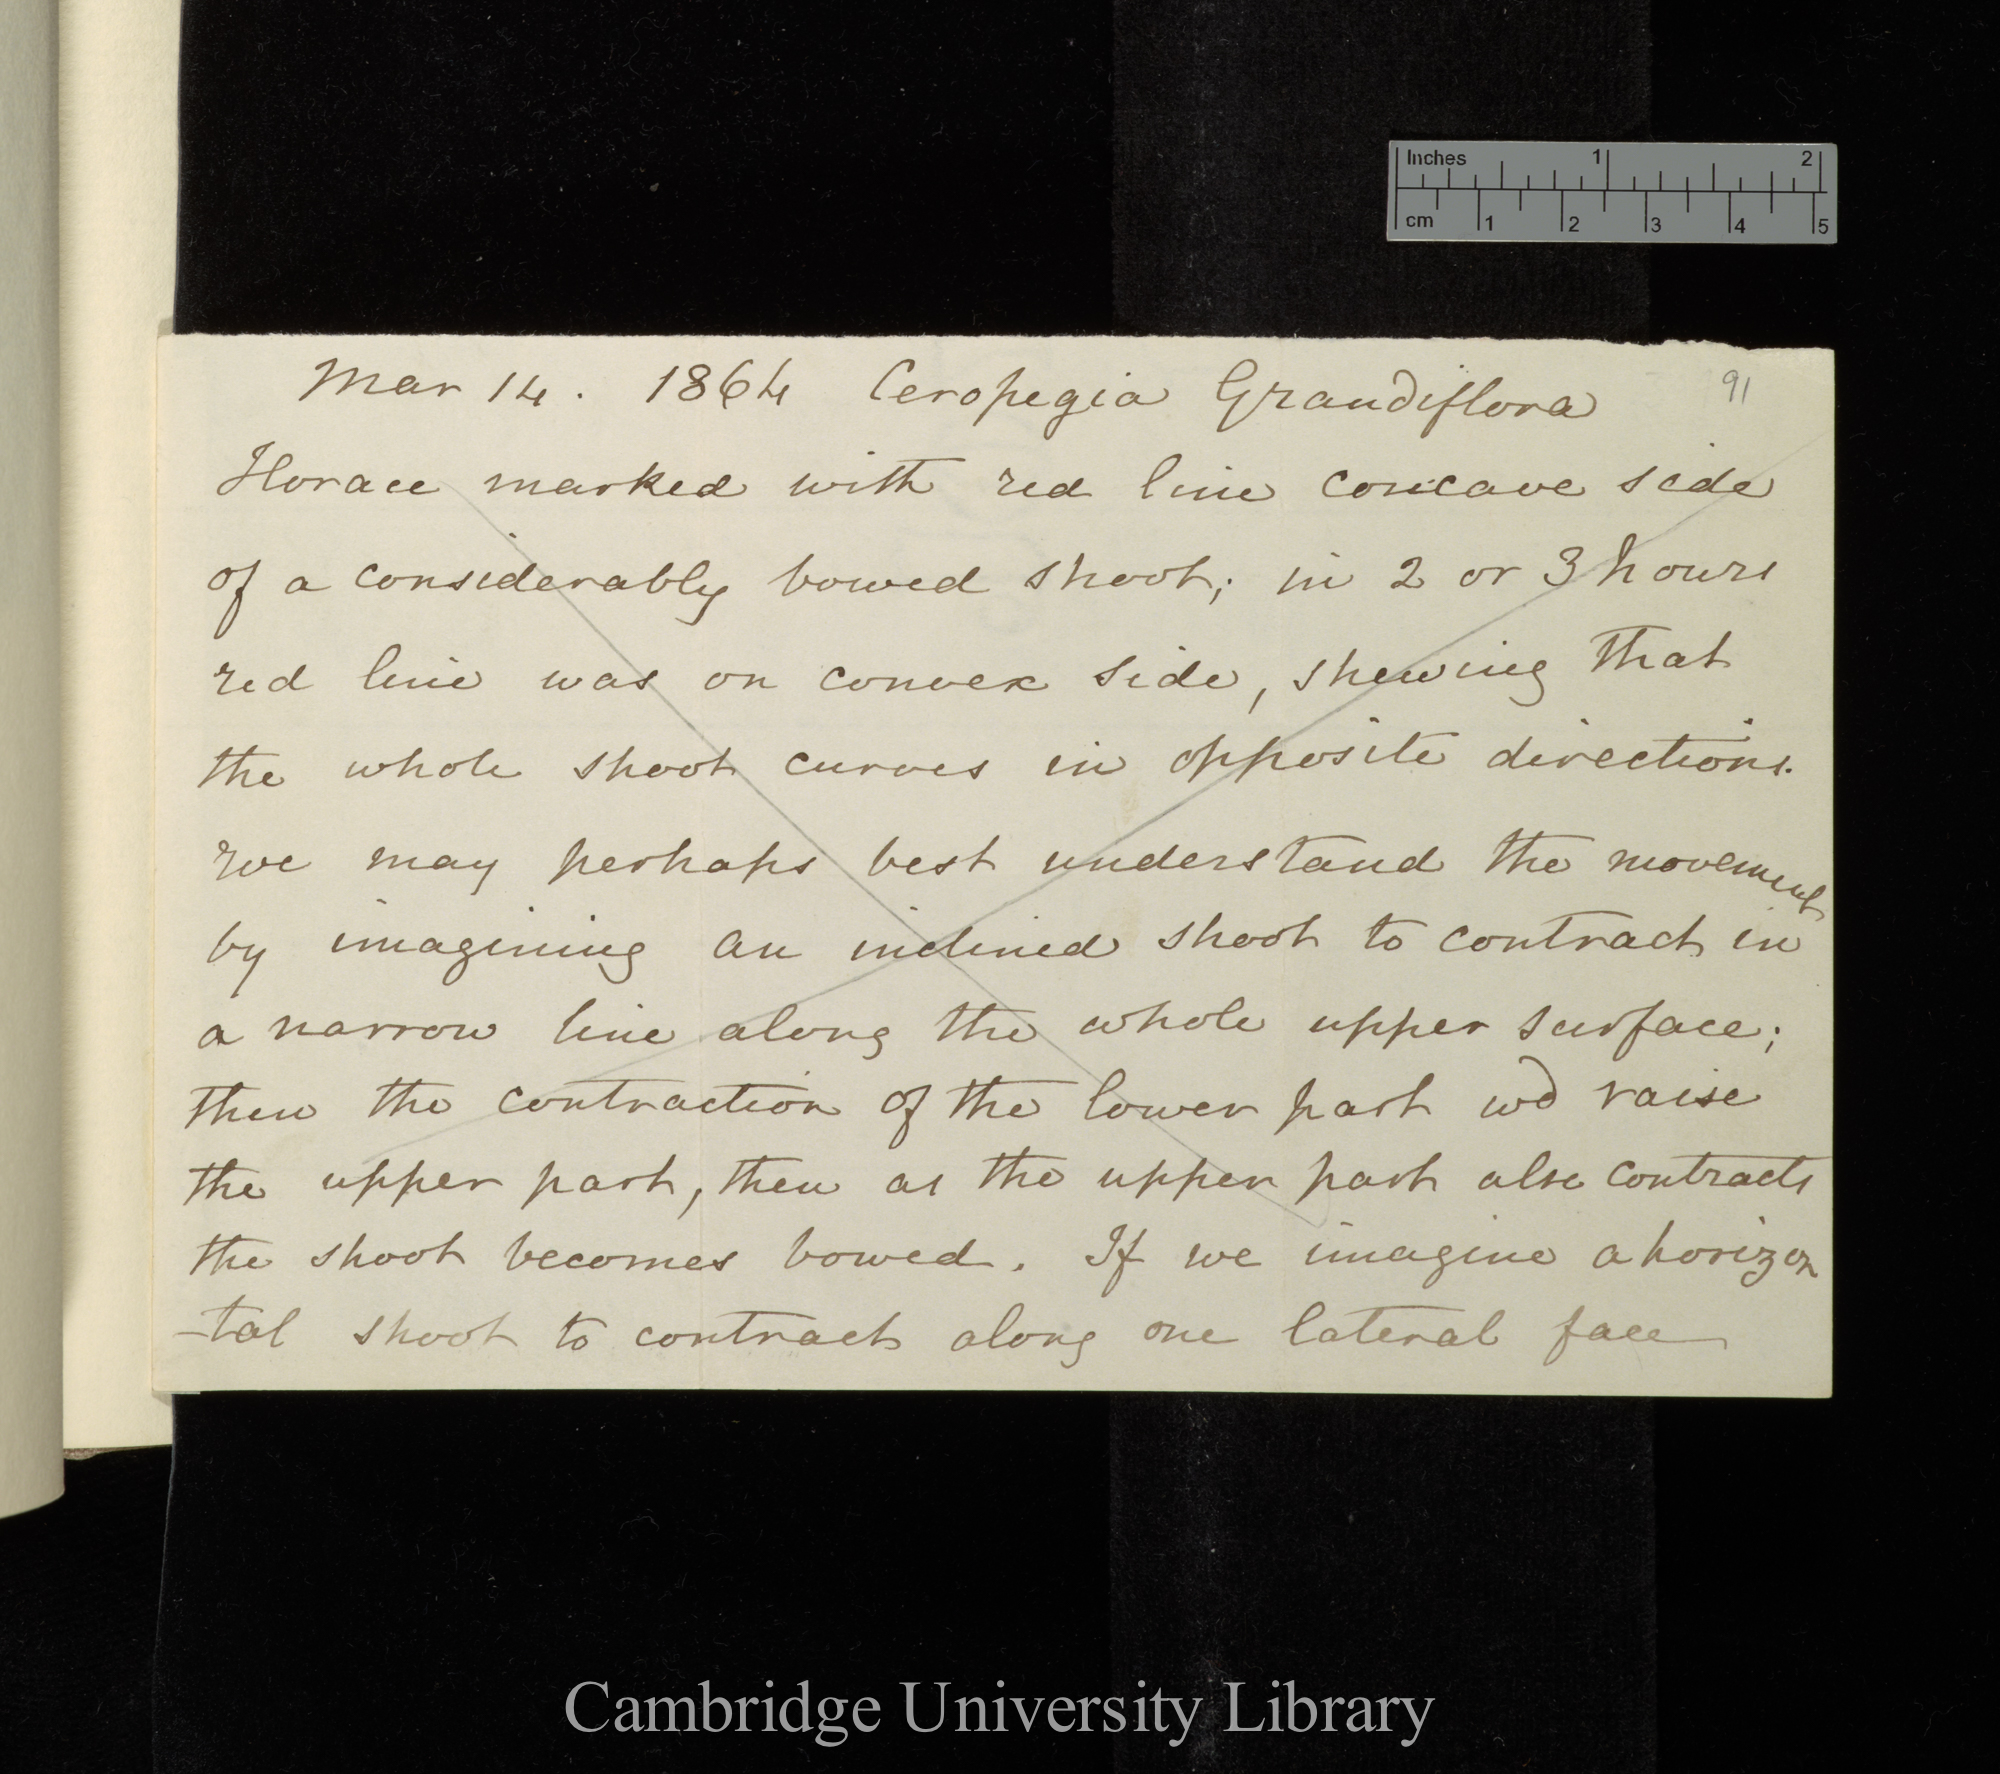 Inches 1 2
cm 1 2 3 4 5
Mar 14. 1864 Ceropegia Grandiflora 91
Horace marked with red line concave side
of a considerably bowed shoot; in 2 or 3 hours
red line was on convex side, shewing that
the whole shoot curves in opposite directions.
We may perhaps best understand the movement
by imagining an inclined shoot to contract in
a narrow line along the whole upper surface;
then the contraction of the lower part wd raise
the upper part, then as the upper part also contracts
the shoot becomes bowed. If we imagine a horizon
-tal shoot to contract along one lateral face
Cambridge University Library